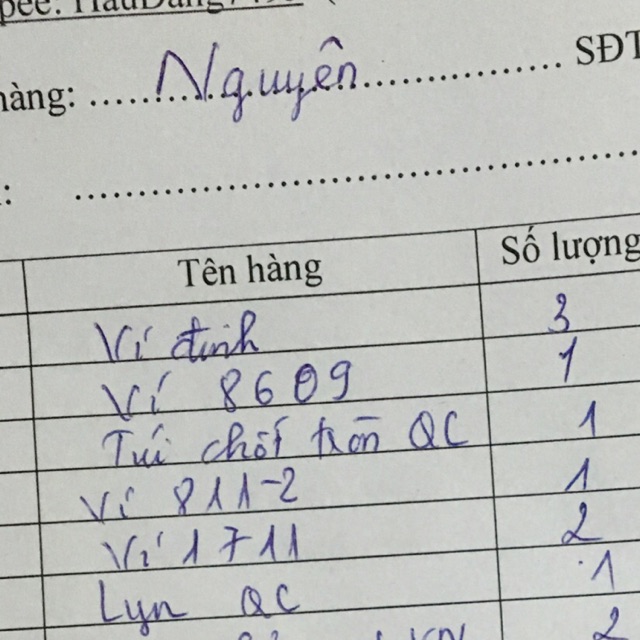 hàng: Nguyên SĐT
Tên hàng Số lượng
Ví đinh 3
Ví 8609 1
Túi chốt tròn QC 1
Ví 811-2 1
Ví 1711 2
Lyn QC 1
2